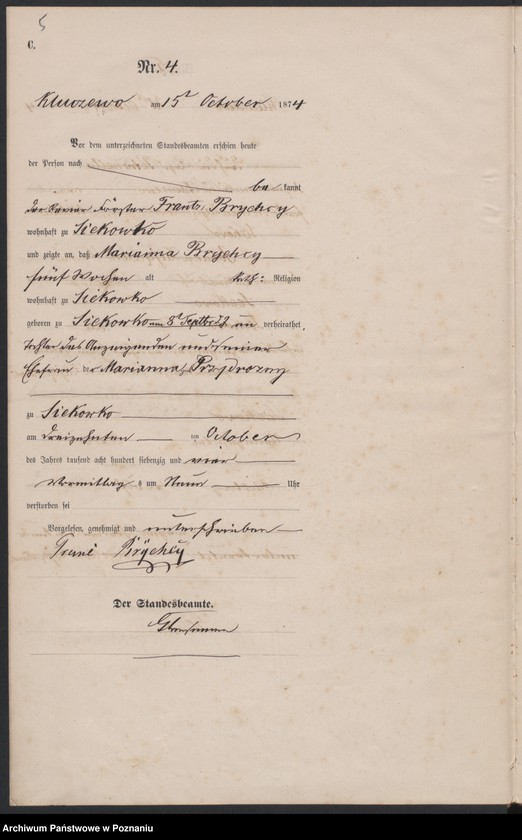 5
C.
Nr. 4.
Kluczewo am 15t October 1874
Vor dem unterzeichneten Standesbeamten erschien heute
der Person nach
bekannt
der Förster Brychcy
wohnhaft zu Siekowko
und zeigte an, daß Marianna Brychcy
fünf Wochen alt kath: Religion
wohnhaft zu Siekowko
geboren zu Siekowko am 8t un verheirathet,
Tochter des Anzeigenden und seiner
Ehefrau Marianna
zu Siekowko
am dreizehnten October
des Jahres tausend acht hundert siebenzig und vier
Vormittags um Neun Uhr
verstorben sei
Vorgelesen, genehmigt und unterschrieben
Brychcy
Der Standesbeamte.
Archiwum Państwowe w Poznaniu